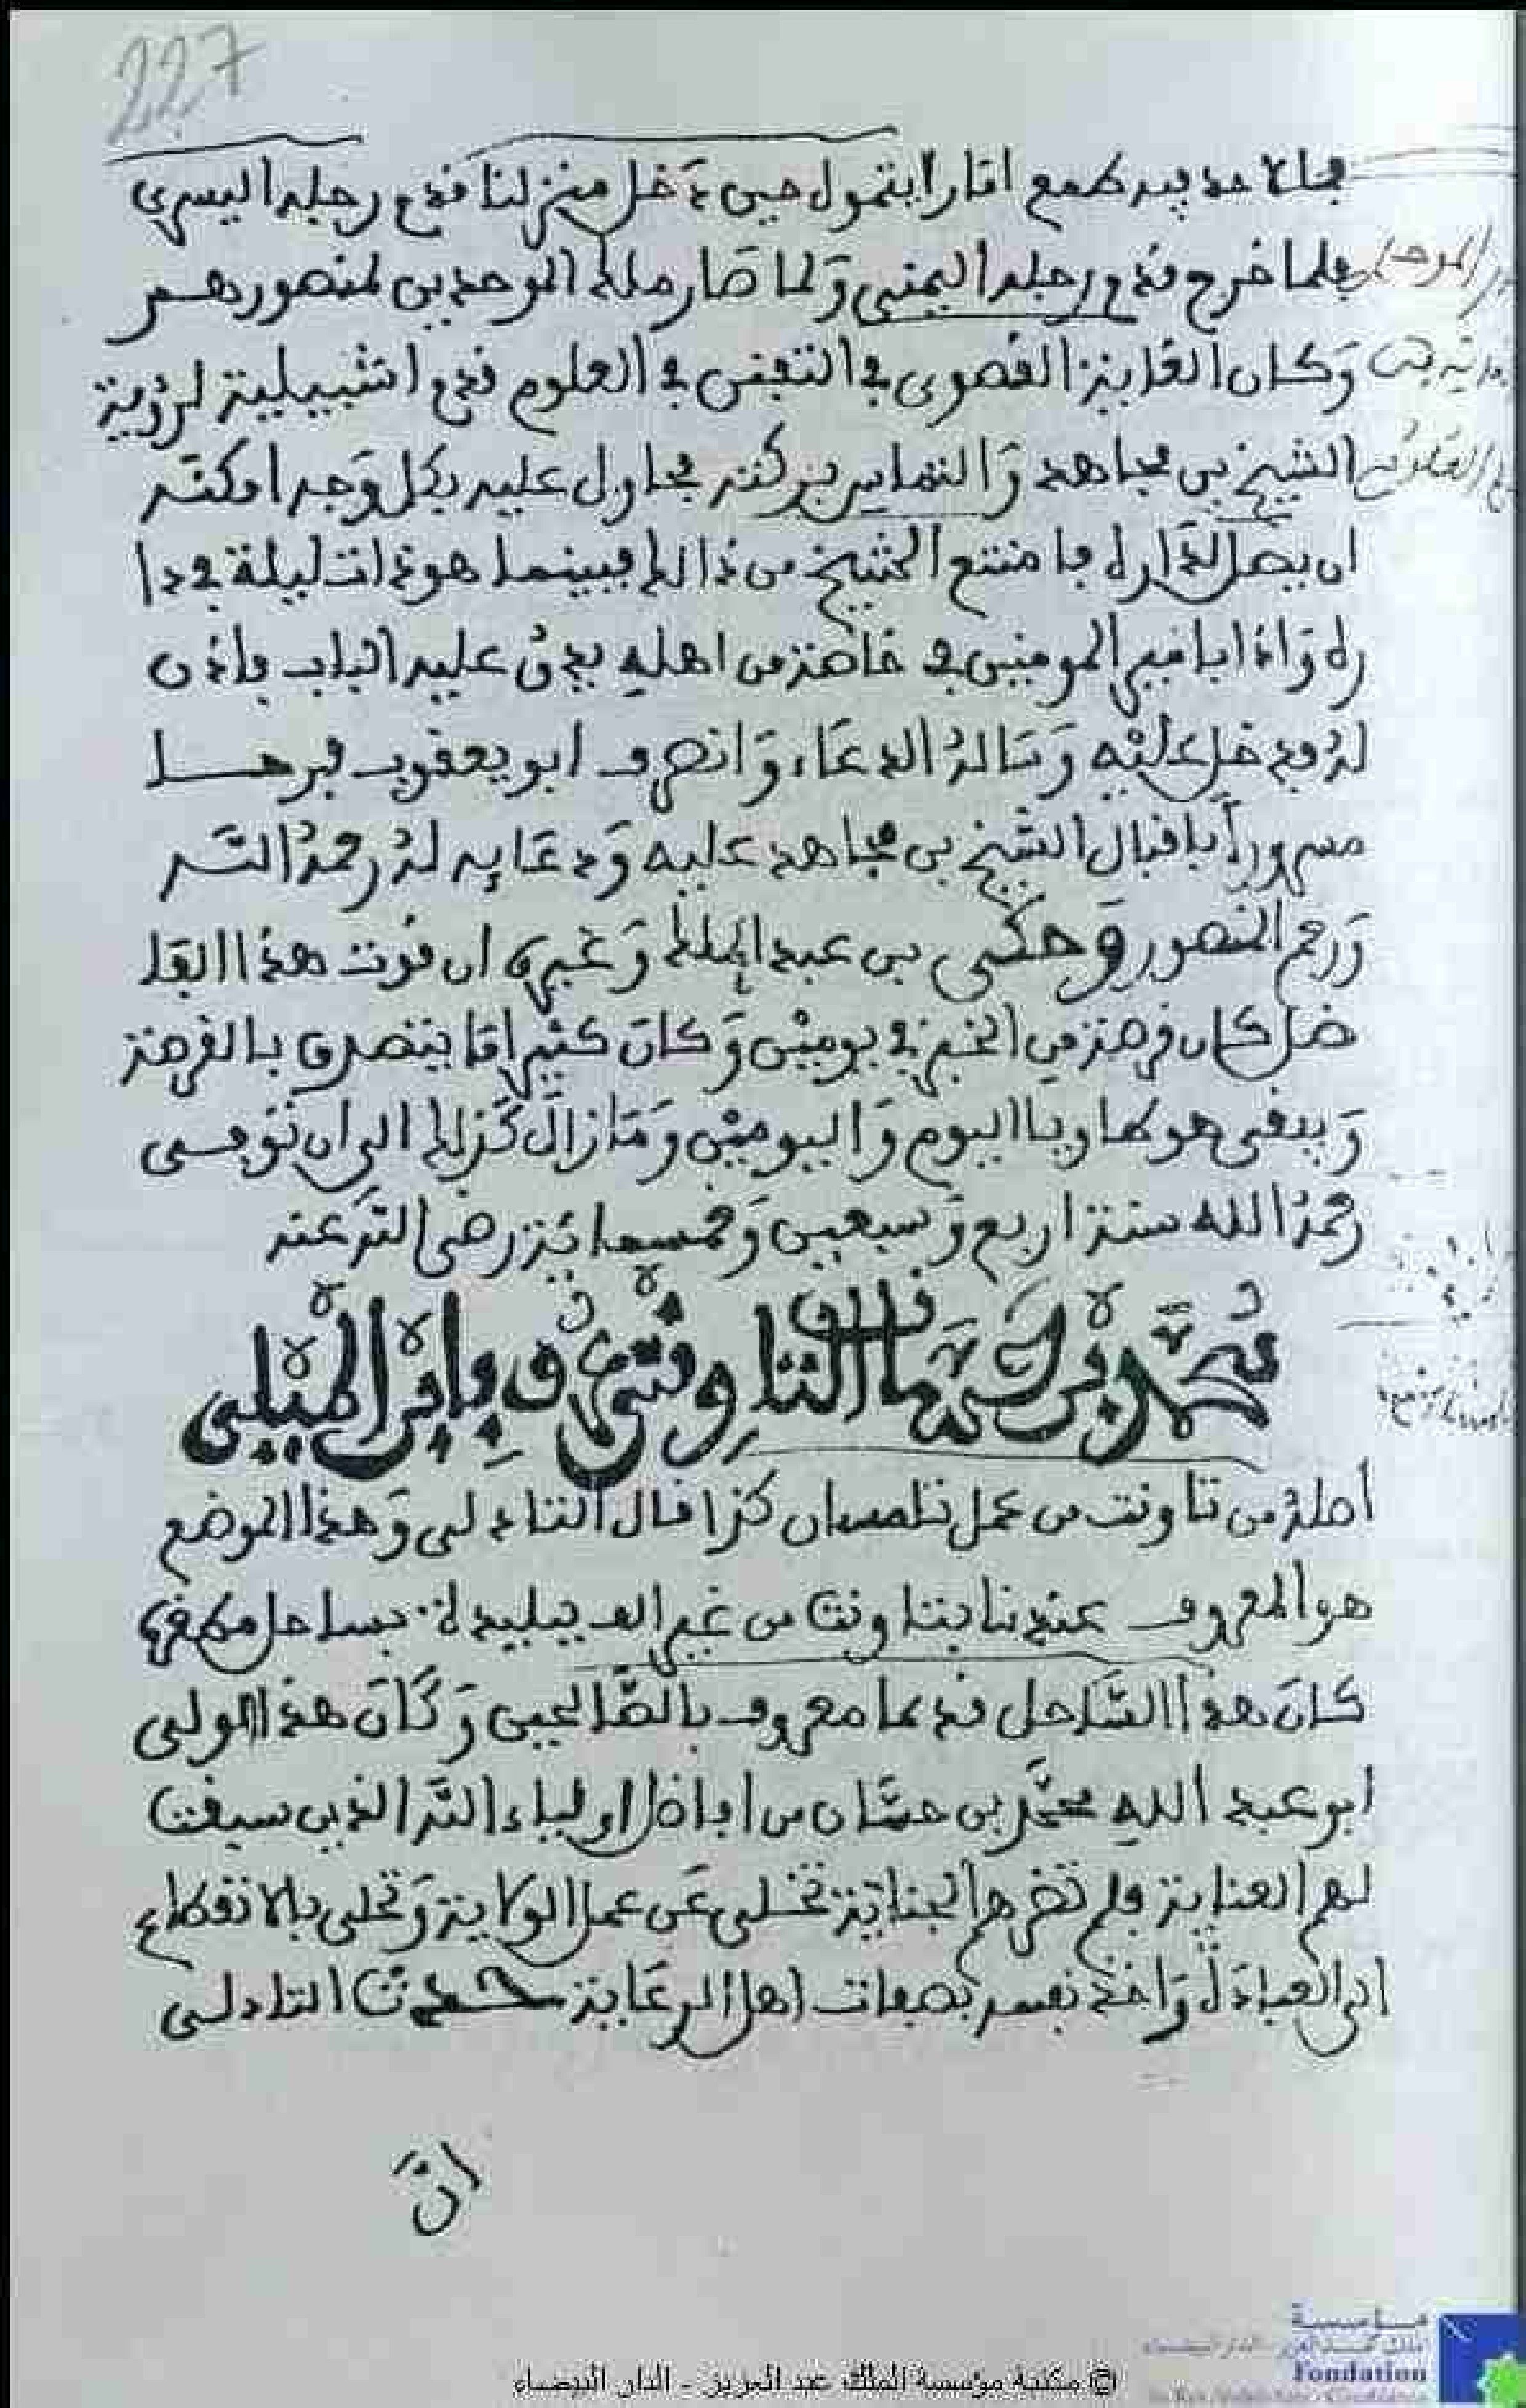 227
فما لاحد فيه طمع اما را يتمول حين دخل منزلنا قدم رجله اليسرى
فلما خرج قدم رجله اليمنى وَلما صَار ملك الموحدين لمنصورهم
وَكان الغَاية القصوى في التفنن في العلوم قدم اشبيلية لرؤية
الشيخ بن مجاهد وَالتماس بركته فحاول عليه بكل وَجه امكنه
ان يصل لدَاره فامتنع الشيخ من ذالك فبينما هو ذات ليلة في دا
ره وَاذا بامير المومنين في خاصة من اهلهِ يدقُ عليه الباب فاذن
لهُ فدخل عليْه وَسَالهُ الدعَاء وَانصرف ابو يعقوب فرحا
مسروراً باقبال الشيخ بن مجاهد عليه وَدعَايه لهُ رحمهُ الله
وَرحم المنصور وَحكى بن عبد الملك وَغيره ان قُوت هذا الفا
ضل كان قرصة من الخبز في يوميْن وَكانَ كثيرا مَا يتصدق بالقرصة
وَيبقى هو طاويا اليوم وَاليوميْن وَمَازالَ كَذلك الى ان تُوفى
رحمهُ الله سنة اربع وَسبعين وَخمسمائة رضى الله عنه
اصلهُ من تاونت من عمل تلمسان كذا قال التادلى وَهذا الموضع
هو المعروف عندنا بتاونت من غير الف بساحل
كانَ هذا السَّاحل قديما معروف بالصَّالحين وَكَانَ هذا الولى
ابو عبد اللهِ محمَّد بن حسَّان من افاضل اولياء الله الذين سبقت
لهم العناية فلم تضرهم الجناية تخلى عَن عمل الولاية وَتحلى بالانقطاع
الى العبادَة وَاخذ نفسه بصفات اهل الرعَاية حدث التادلى
انَّ
مؤسسة
Fondation
© مكتبة مؤسسة الملك عبد العزيز - الدار البيضاء